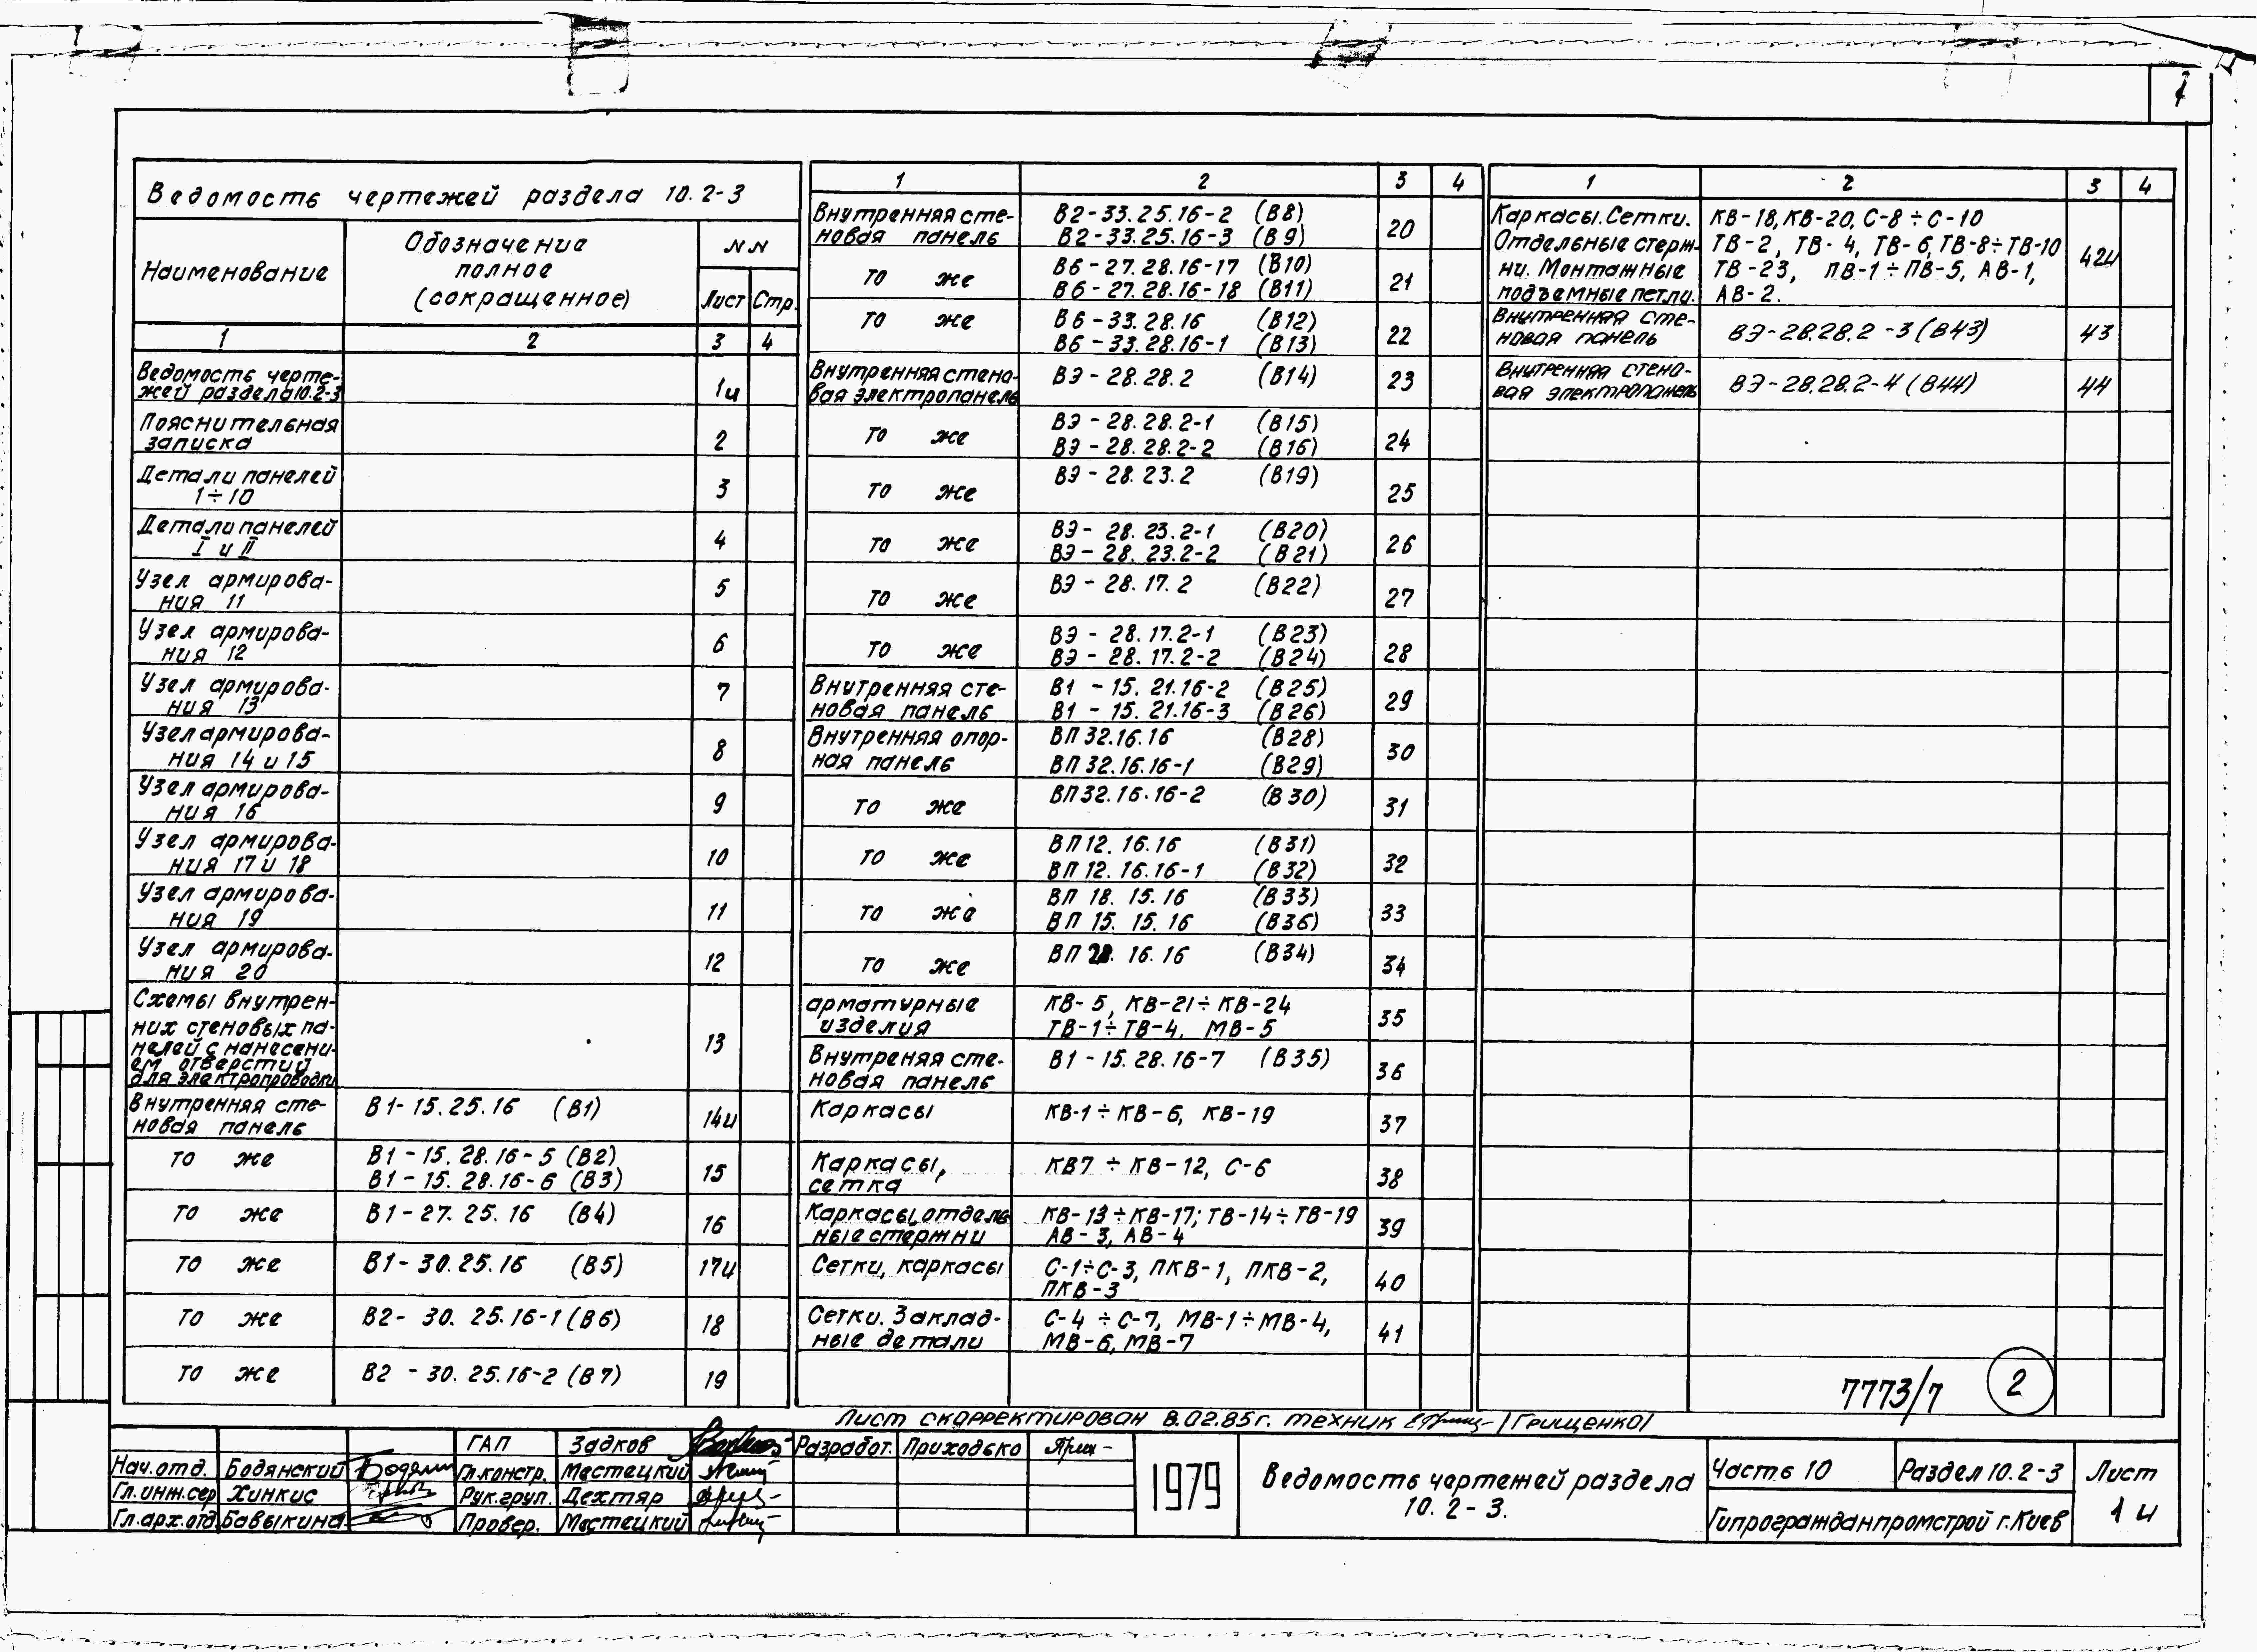 Ведомость чертежей раздела 10.2-3
Наименование
Обозначение
полное
(сокращенное)
NN
Лист Стр.
1 2 3 4
Ведомость черте-
жей раздела 10.2-3
1и
Пояснительная
записка
2
Детали панелей
1÷10
3
Детали панелей
I и II
4
Узел армирова-
ния 11
5
Узел армирова-
ния 12
6
Узел армирова-
ния 13
7
Узел армирова-
ния 14 и 15
8
Узел армирова-
ния 16
9
Узел армирова-
ния 17 и 18
10
Узел армирова-
ния 19
11
Узел армирова-
ния 20
12
Схемы внутрен-
них стеновых па-
нелей с нанесени-
ем отверстий
для электропроводки
13
Внутренняя сте-
новая панель
В1-15.25.16 (В1)
14и
то же
В1-15.28.16-5 (В2)
В1-15.28.16-6 (В3)
15
то же В1-27.25.16 (В4) 16
то же В1-30.25.16 (В5) 17и
то же В2-30.25.16-1 (В6) 18
то же В2-30.25.16-2 (В7) 19
1 2 3 4
Внутренняя сте-
новая панель
В2-33.25.16-2 (В8)
В2-33.25.16-3 (В9)
20
то же
В6-27.28.16-17 (В10)
В6-27.28.16-18 (В11)
21
то же
В6-33.28.16 (В12)
В6-33.28.16-1 (В13)
22
Внутренняя стено-
вая электропанель
ВЭ-28.28.2 (В14)
23
то же
ВЭ-28.28.2-1 (В15)
ВЭ-28.28.2-2 (В16)
24
то же
ВЭ-28.23.2 (В19)
25
то же
ВЭ-28.23.2-1 (В20)
ВЭ-28.23.2-2 (В21)
26
то же
ВЭ-28.17.2 (В22)
27
то же
ВЭ-28.17.2-1 (В23)
ВЭ-28.17.2-2 (В24)
28
Внутренняя сте-
новая панель
В1-15.21.16-2 (В25)
В1-15.21.16-3 (В26)
29
Внутренняя опор-
ная панель
ВП32.16.16 (В28)
ВП32.16.16-1 (В29)
30
то же
ВП32.16.16-2 (В30)
31
то же
ВП12.16.16 (В31)
ВП12.16.16-1 (В32)
32
то же
ВП 18.15.16 (В33)
ВП 15.15.16 (В36)
33
то же
ВП 16.16 (В34)
34
арматурные
изделия
КВ-5, КВ-21÷КВ-24
ТВ-1÷ТВ-4, МВ-5
35
Внутреняя сте-
новая панель
В1-15.28.16-7 (В35)
36
Каркасы
КВ-1÷КВ-6, КВ-19
37
Каркасы,
сетка
КВ7÷КВ-12, С-6
38
Каркасы, отдель
ные стержни
КВ-13÷КВ-17; ТВ-14÷ТВ-19
АВ-3, АВ-4
39
Сетки, каркасы
С-1÷С-3, ПКВ-1, ПКВ-2,
ПКВ-3
40
Сетки. Заклад-
ные детали
С-4÷С-7, МВ-1÷МВ-4,
МВ-6, МВ-7
41
1 2 3 4
Каркасы. Сетки.
Отдельные стерж-
ни. Монтажные
подъемные петли.
КВ-18, КВ-20, С-8÷С-10
ТВ-2, ТВ-4, ТВ-6, ТВ-8÷ТВ-10
ТВ-23, ПВ-1÷ПВ-5, АВ-1,
АВ-2.
42и
Внутренняя сте-
новая панель
ВЭ-28.28.2-3 (В43)
43
Внутренняя стено-
вая электропанель
ВЭ-28.28.2-4 (В44)
44
7773/7
2
Лист скорректирован 8.02.85г. техник /Грищенко/
ГАП Задков
Разработ. Приходько
Нач.отд. Бодянский Гл.констр. Местецкий
Гл.инж.сер Хинкис Рук.груп. Дехтяр
Гл.арх.отд. Бавыкина Провер. Местецкий
1979
Ведомость чертежей раздела
10.2-3.
Часть 10
Раздел 10.2-3
Гипрогражданпромстрой г.Киев
Лист
1и